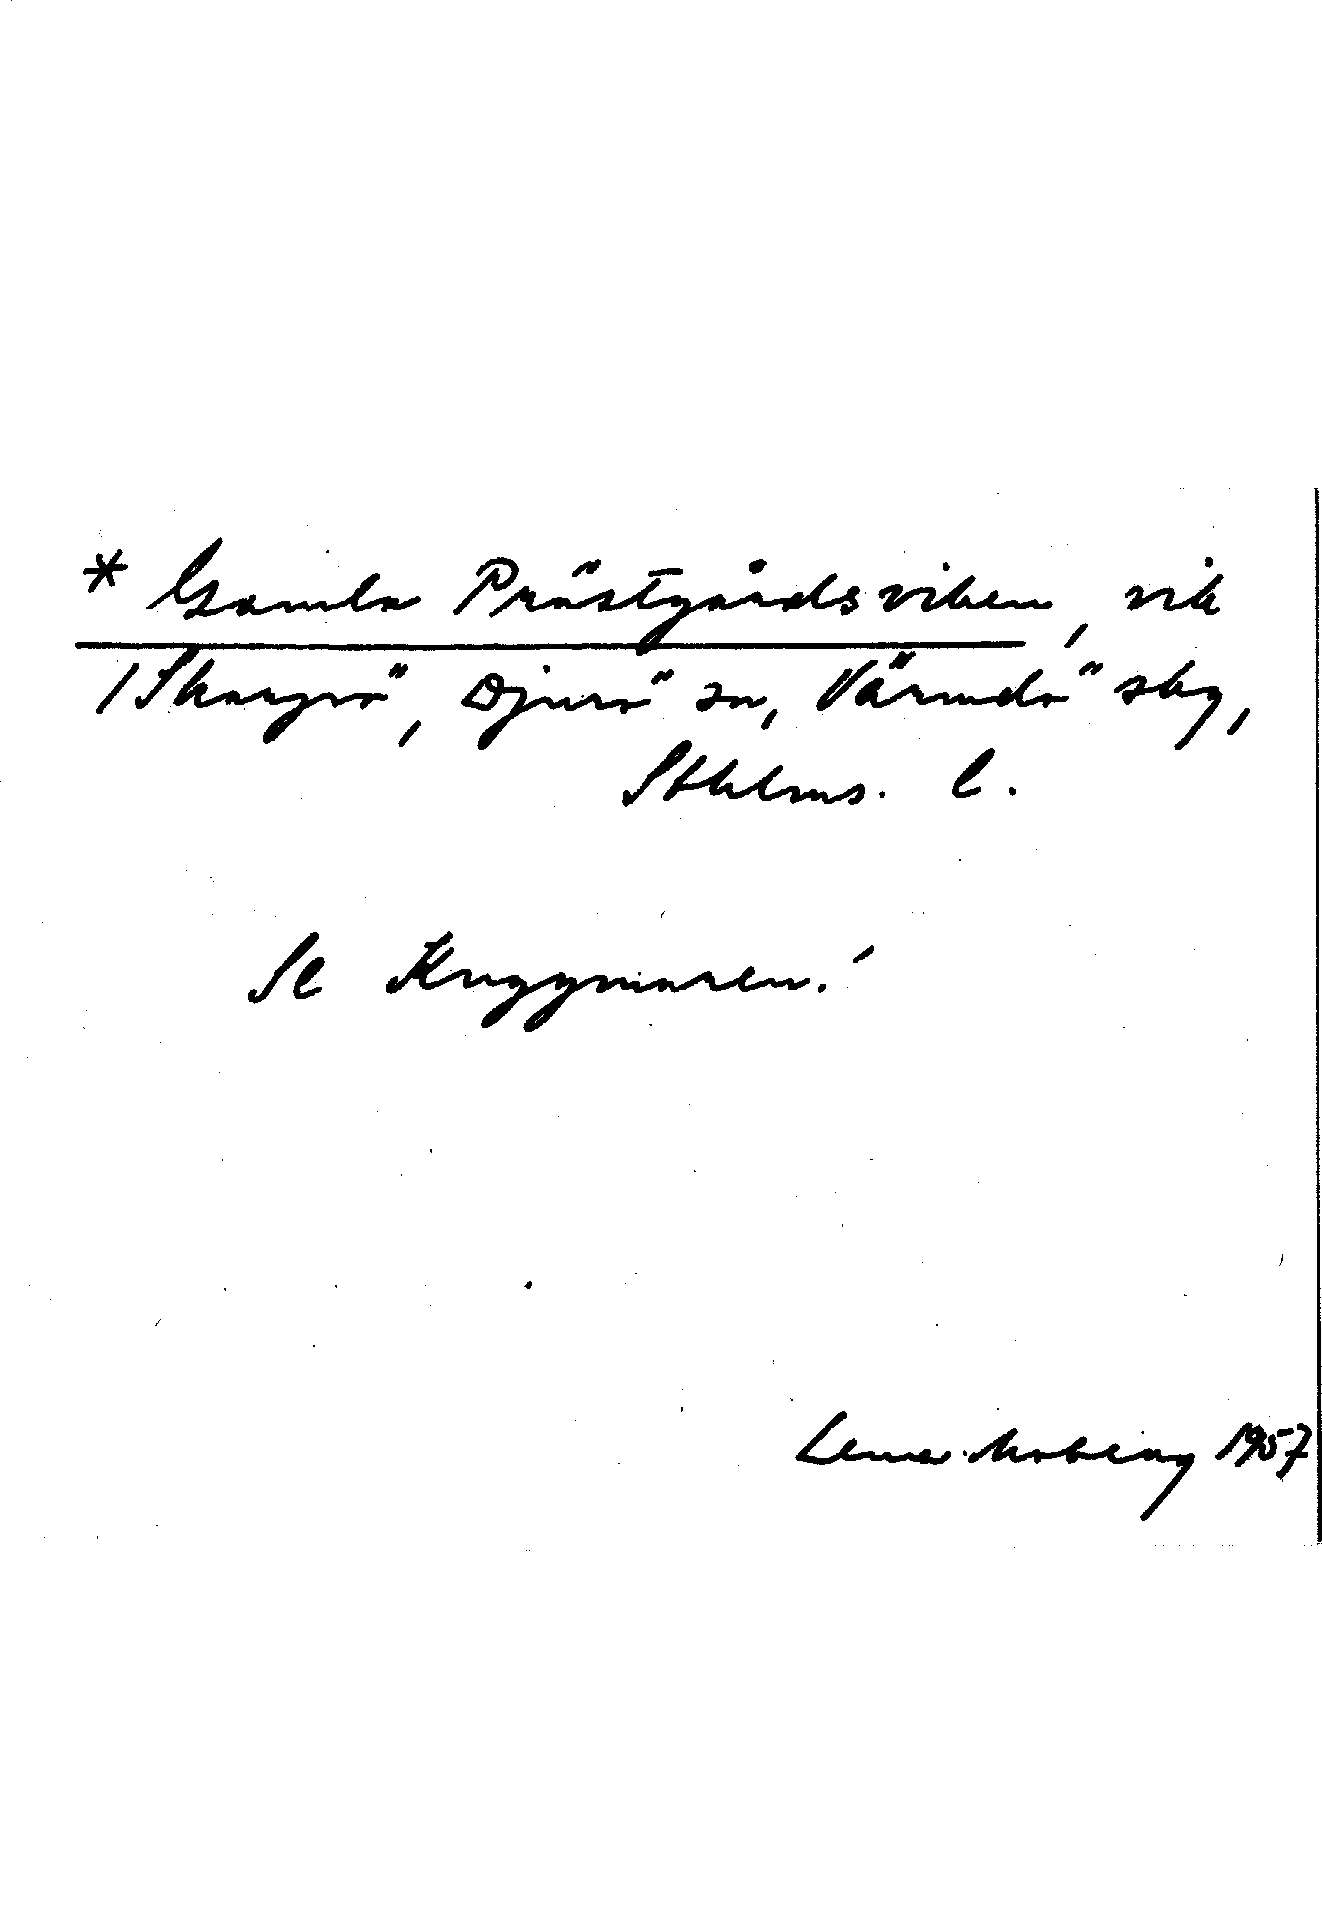 * Gamla Prästgårdsviken, vik
/Skarpö, Djurö sn, Värmdö skg,
Sthlms. l.
Se Kuggmaren!
Lena Moberg 1957